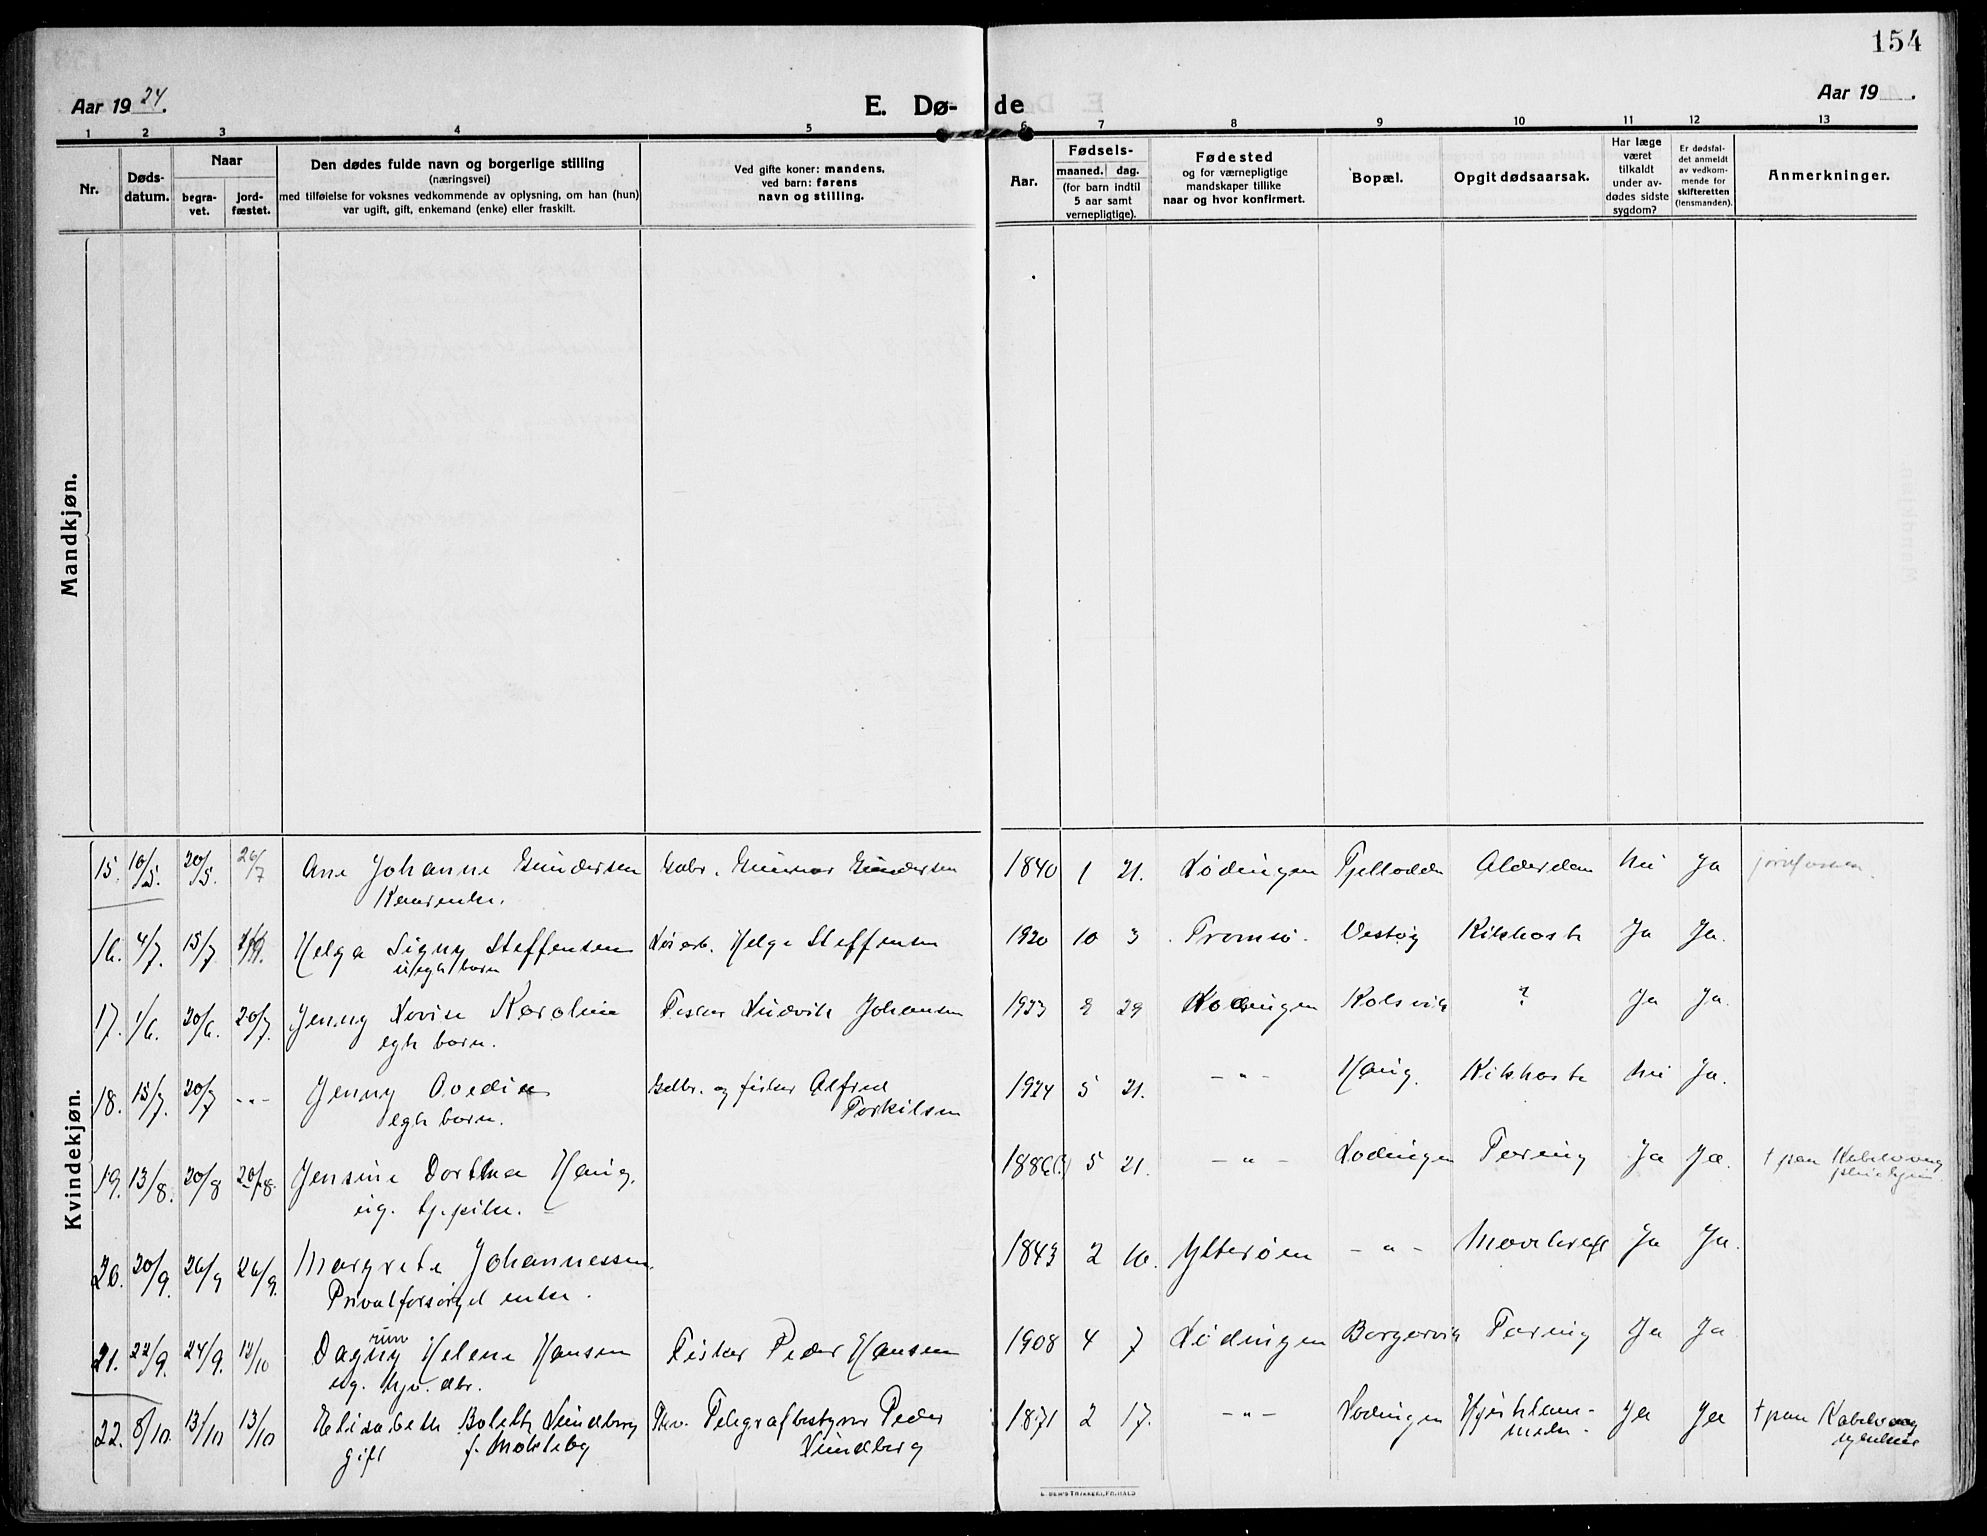 154
Aar 1924.
E. Dø-
de
Aar 19 .
1 2 3 4 5 6 7 8 9 10 11 12 13
Nr.
Døds-
datum.
Naar
begra-
vet.
jord-
fæstet.
Den dødes fulde navn og borgerlige stilling
(næringsvei)
med tilføielse for voksnes vedkommende av oplysning, om han (hun)
var ugift, gift, enkemand (enke) eller fraskilt.
Ved gifte koner: mandens,
ved barn: farens
navn og stilling.
Aar.
Fødsels-
maaned. dag.
(for barn indtil
5 aar samt
vernepligtige).
Fødested
og for værnepligtige
mandskaper tillike
naar og hvor konfirmert.
Bopæl.
Opgit dødsaarsak.
Har læge
været
tilkaldt
under av-
dødes sidste
sygdom?
Er dødsfal-
det anmeldt
av vedkom-
mende for
skifteretten
(lensmanden).
Anmerkninger.
Mandkjøn.
Kvindekjøn.
15. 10/5. 20/5. 26/7 Ane Johanne Gundersen Gabr. Gunnar Gundersen 1840 1 21. Lødingen Fjeldodde Alderdom Nei Ja
16. 4/7. 15/7 Helga Signy Steffensen Helge Steffensen 1920 10 3. Tromsø. Vestøy Kikhoste Ja Ja.
17. 1/6. 20/6. 20/7. Jenny Lovise Karoline Fisker Ludvik Johansen 1923 2 29 Lødingen Kolsvik ? Ja Ja.
egte barn.
18. 15/7. 20/7 -"- Jenny Ovedie Gdbr. og fisker Alfred 1924 5 21. -"- Haug. Kikhoste Nei Ja.
egte barn. Torkilsen
19. 13/8. 20/8 20/8. Jensine Dorthea Haug, 1886(?) 5 21. -"- Lødingen Tæring Ja Ja. † paa Kabelvaag
ug. tj.pike.
20. 20/9. 26/9 26/9. Margrete Johannessen. 1843 2 10. Ytterøen -"- Mavekræft Ja Ja.
Privatforsørget enke.
21. 22/9. 24/9. 12/10 Dagny Helene Hansen Fisker Peder Hansen 1908 4 7 Lødingen Borgervik Tæring Ja Ja
run
ug. hjv. dtr.
22. 8/10. 13/10 13/10 Elisabeth Bolette Lundberg Telegrafbestyrer Peder 1871 2 17. -"- Lødingen Hjerteklam- Ja Ja † paa Kabelvaag
gift f. Moksleby Lundberg sykehus